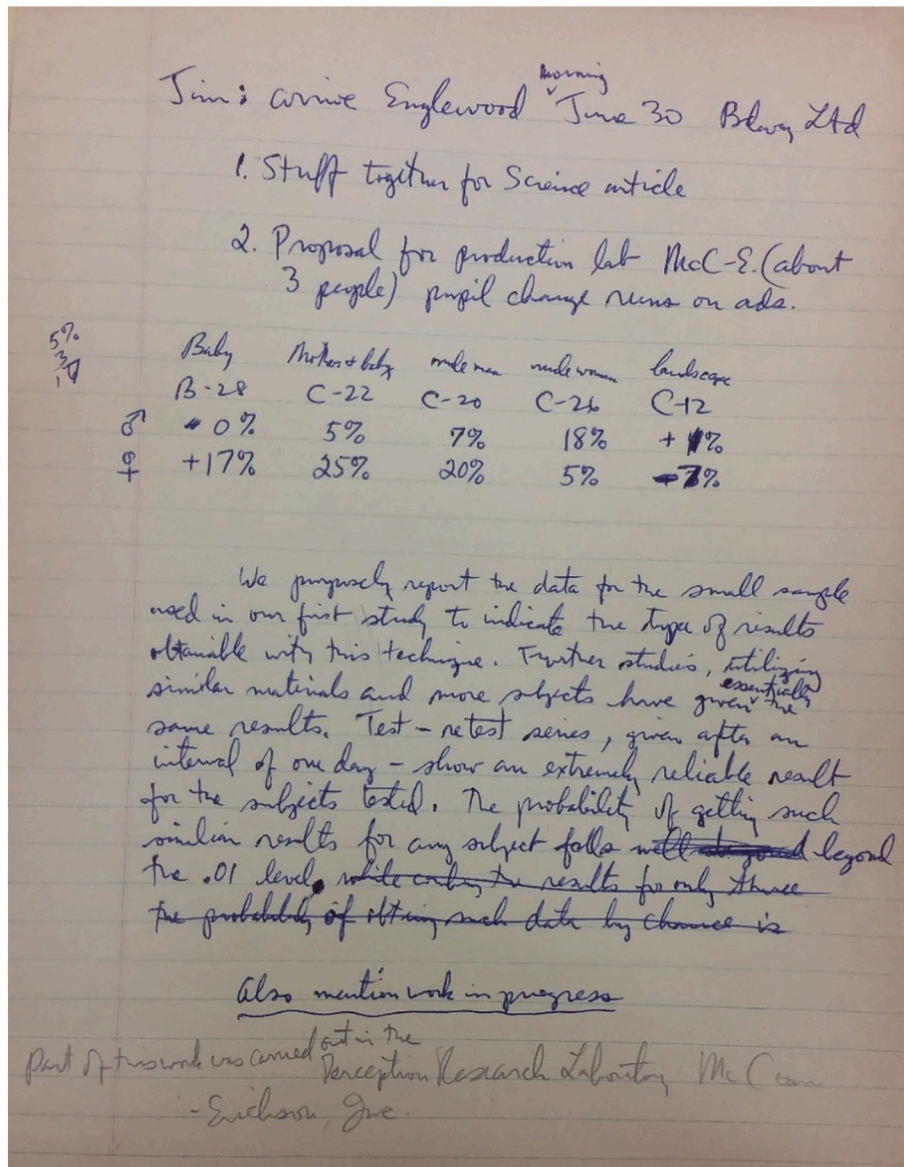 Jim: arrive Englewood morning June 30 Bdway Ltd
1. Stuff together for Science article
2. Proposal for production lab McC-E. (about
3 people) pupil change runs on ads.
5%
3
1
Baby Mother & baby nude man nude woman landscape
B-28 C-22 C-20 C-26 C-12
♂ 0% 5% 7% 18% + 1%
♀ +17% 25% 20% 5% -7%
We purposely report the data for the small sample
used in our first study to indicate the type of results
obtainable with this technique. Further studies, utilizing
similar materials and more subjects have given essentially the
same results. Test - retest series, given after an
interval of one day - show an extremely reliable result
for the subjects tested. The probability of getting such
similar results for any subject falls well beyond
the .01 level. while the results for only three
the probability of obtaining such data by chance is
Also mention work in progress
Part of this work was carried out in the
Perception Research Laboratory McCann
-Erickson, Inc.